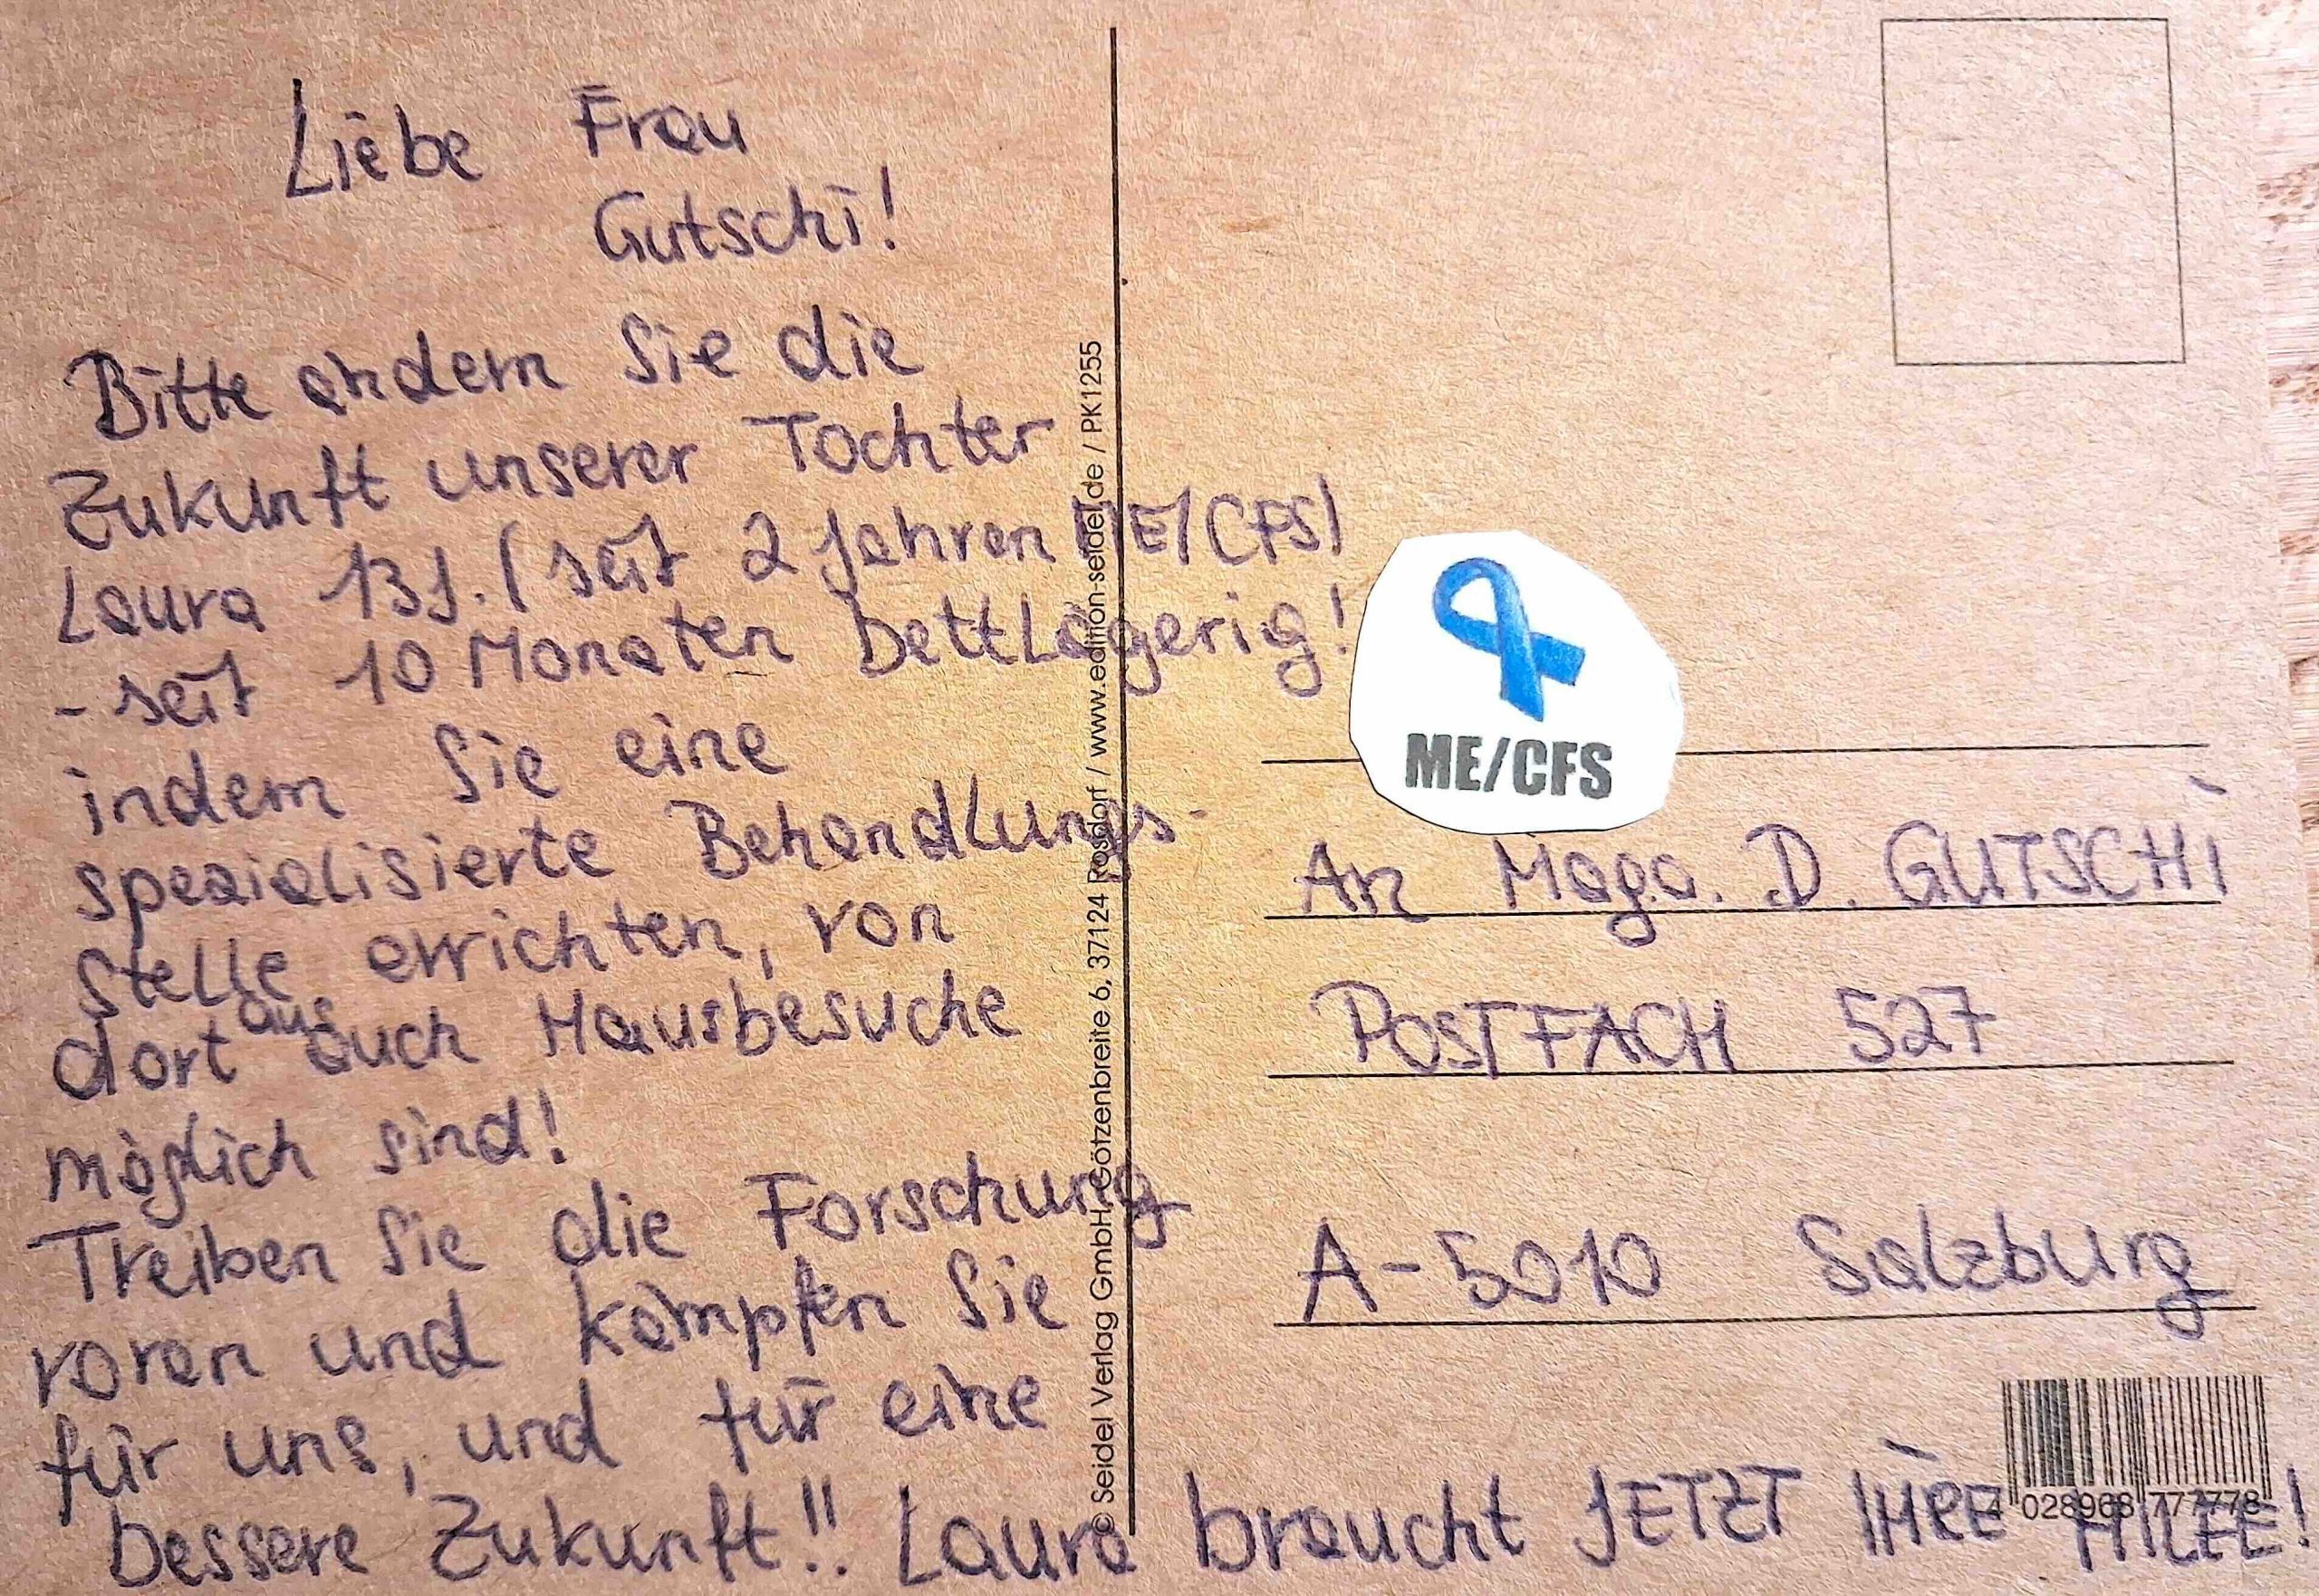 Liebe Frau
Gutschi!
Bitte ändern Sie die
Zukunft unserer Tochter
Laura 13J. (seit 2 Jahren ME/CFS)
- seit 10 Monaten bettlägerig!
indem Sie eine
spezialisierte Behandlungs-
stelle errichten, von
dort aus auch Hausbesuche
möglich sind!
Treiben Sie die Forschung
voran und kämpfen Sie
für uns, und für eine
bessere Zukunft!! Laura braucht JETZT IHRE HILFE!
© Seidel Verlag GmbH, Götzenbreite 6, 37124 Rosdorf / www.edition-seidel.de / PK1255
ME/CFS
An Maga. D. GUTSCHI
POSTFACH 527
A-5010 Salzburg
4 028968 777778